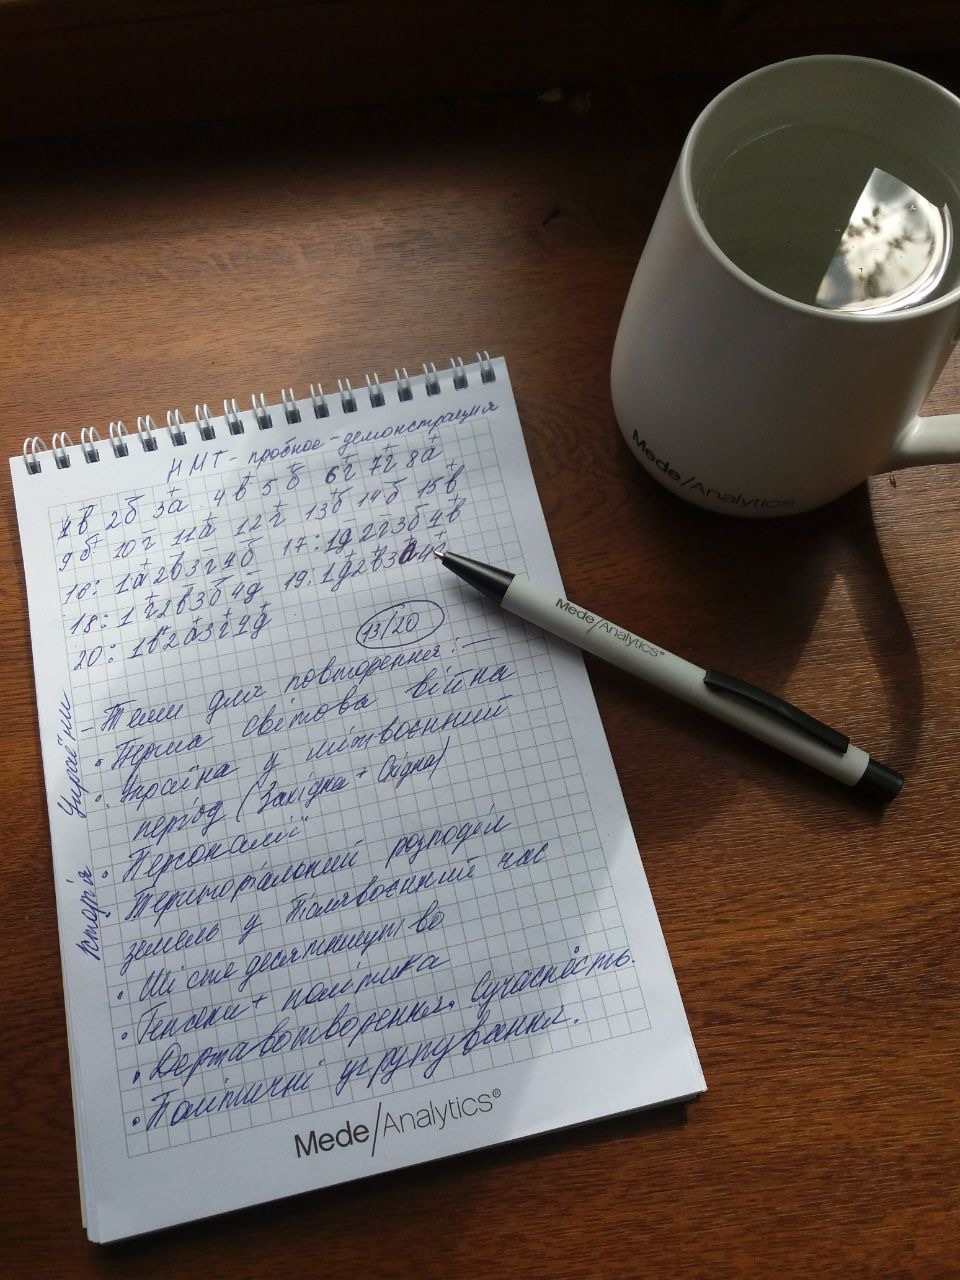 НМТ - пробное - демонстрация
1в 2б 3а 4в 5б 6г 7г 8а
9б 10г 11а 12г 13б 14б 15в
16: 1а2в3г4б 17: 1д2г3б4в
18: 1г2в3б4д 19: 1д2в3а4
20: 1в2а3г4д
13/20
- Теми для повторення: -
• Перша світова війна
• Україна у міжвоєнний
період (Західна + Східна)
• Персоналії
Територіальний розподіл
земель у післявоєнний час
• Шістдесятництво
• політика
• Державотворення. Сучасність.
• Політичні угрупування.
Історія України
Mede/Analytics®
Mede/Analytics®
Mede/Analytics